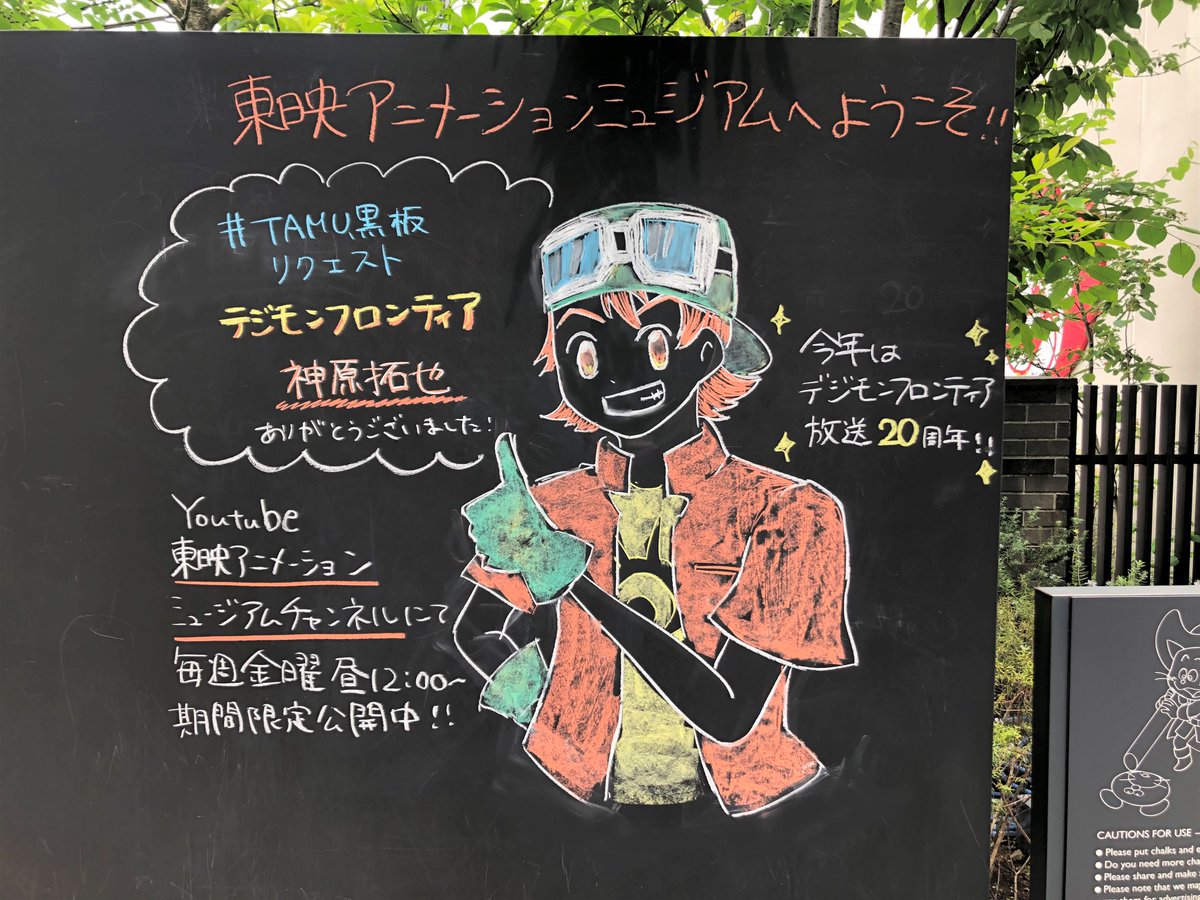 東映アニメーションミュージアムへようこそ!!
#TAMU黒板
リクエスト
デジモンフロンティア
神原拓也
ありがとうございました!
今年は
デジモンフロンティア
放送20周年!!
Youtube
東映アニメーション
ミュージアムチャンネルにて
毎週金曜昼12:00~
期間限定公開中!!
CAUTIONS FOR USE
● Please put chalks and
● Do you need more
● Please share and make
● Please note that we